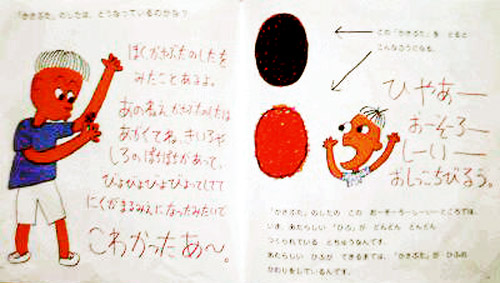 「かさぶた」のしたは、どうなっているのかな？
ぼく、かさぶたのしたを
みたことあるよ。
あのねえ、かさぶたのしたは
あかくてね、きいろや
しろの
があって、
にくがまるみえになったみたいで
こわかったあ〜。
この「かさぶた」を とると
こんなふうになる。
ひやあー
おーそろー
しーいー
おしっこちびるう。
「かさぶた」のしたの この おーそーろーしーいーところでは、
いま、あたらしい 「ひふ」が どんどん どんどん
つくられている とちゅうなんです。
あたらしい ひふが できるまでは、「かさぶた」が ひふの
かわりをしているんです。